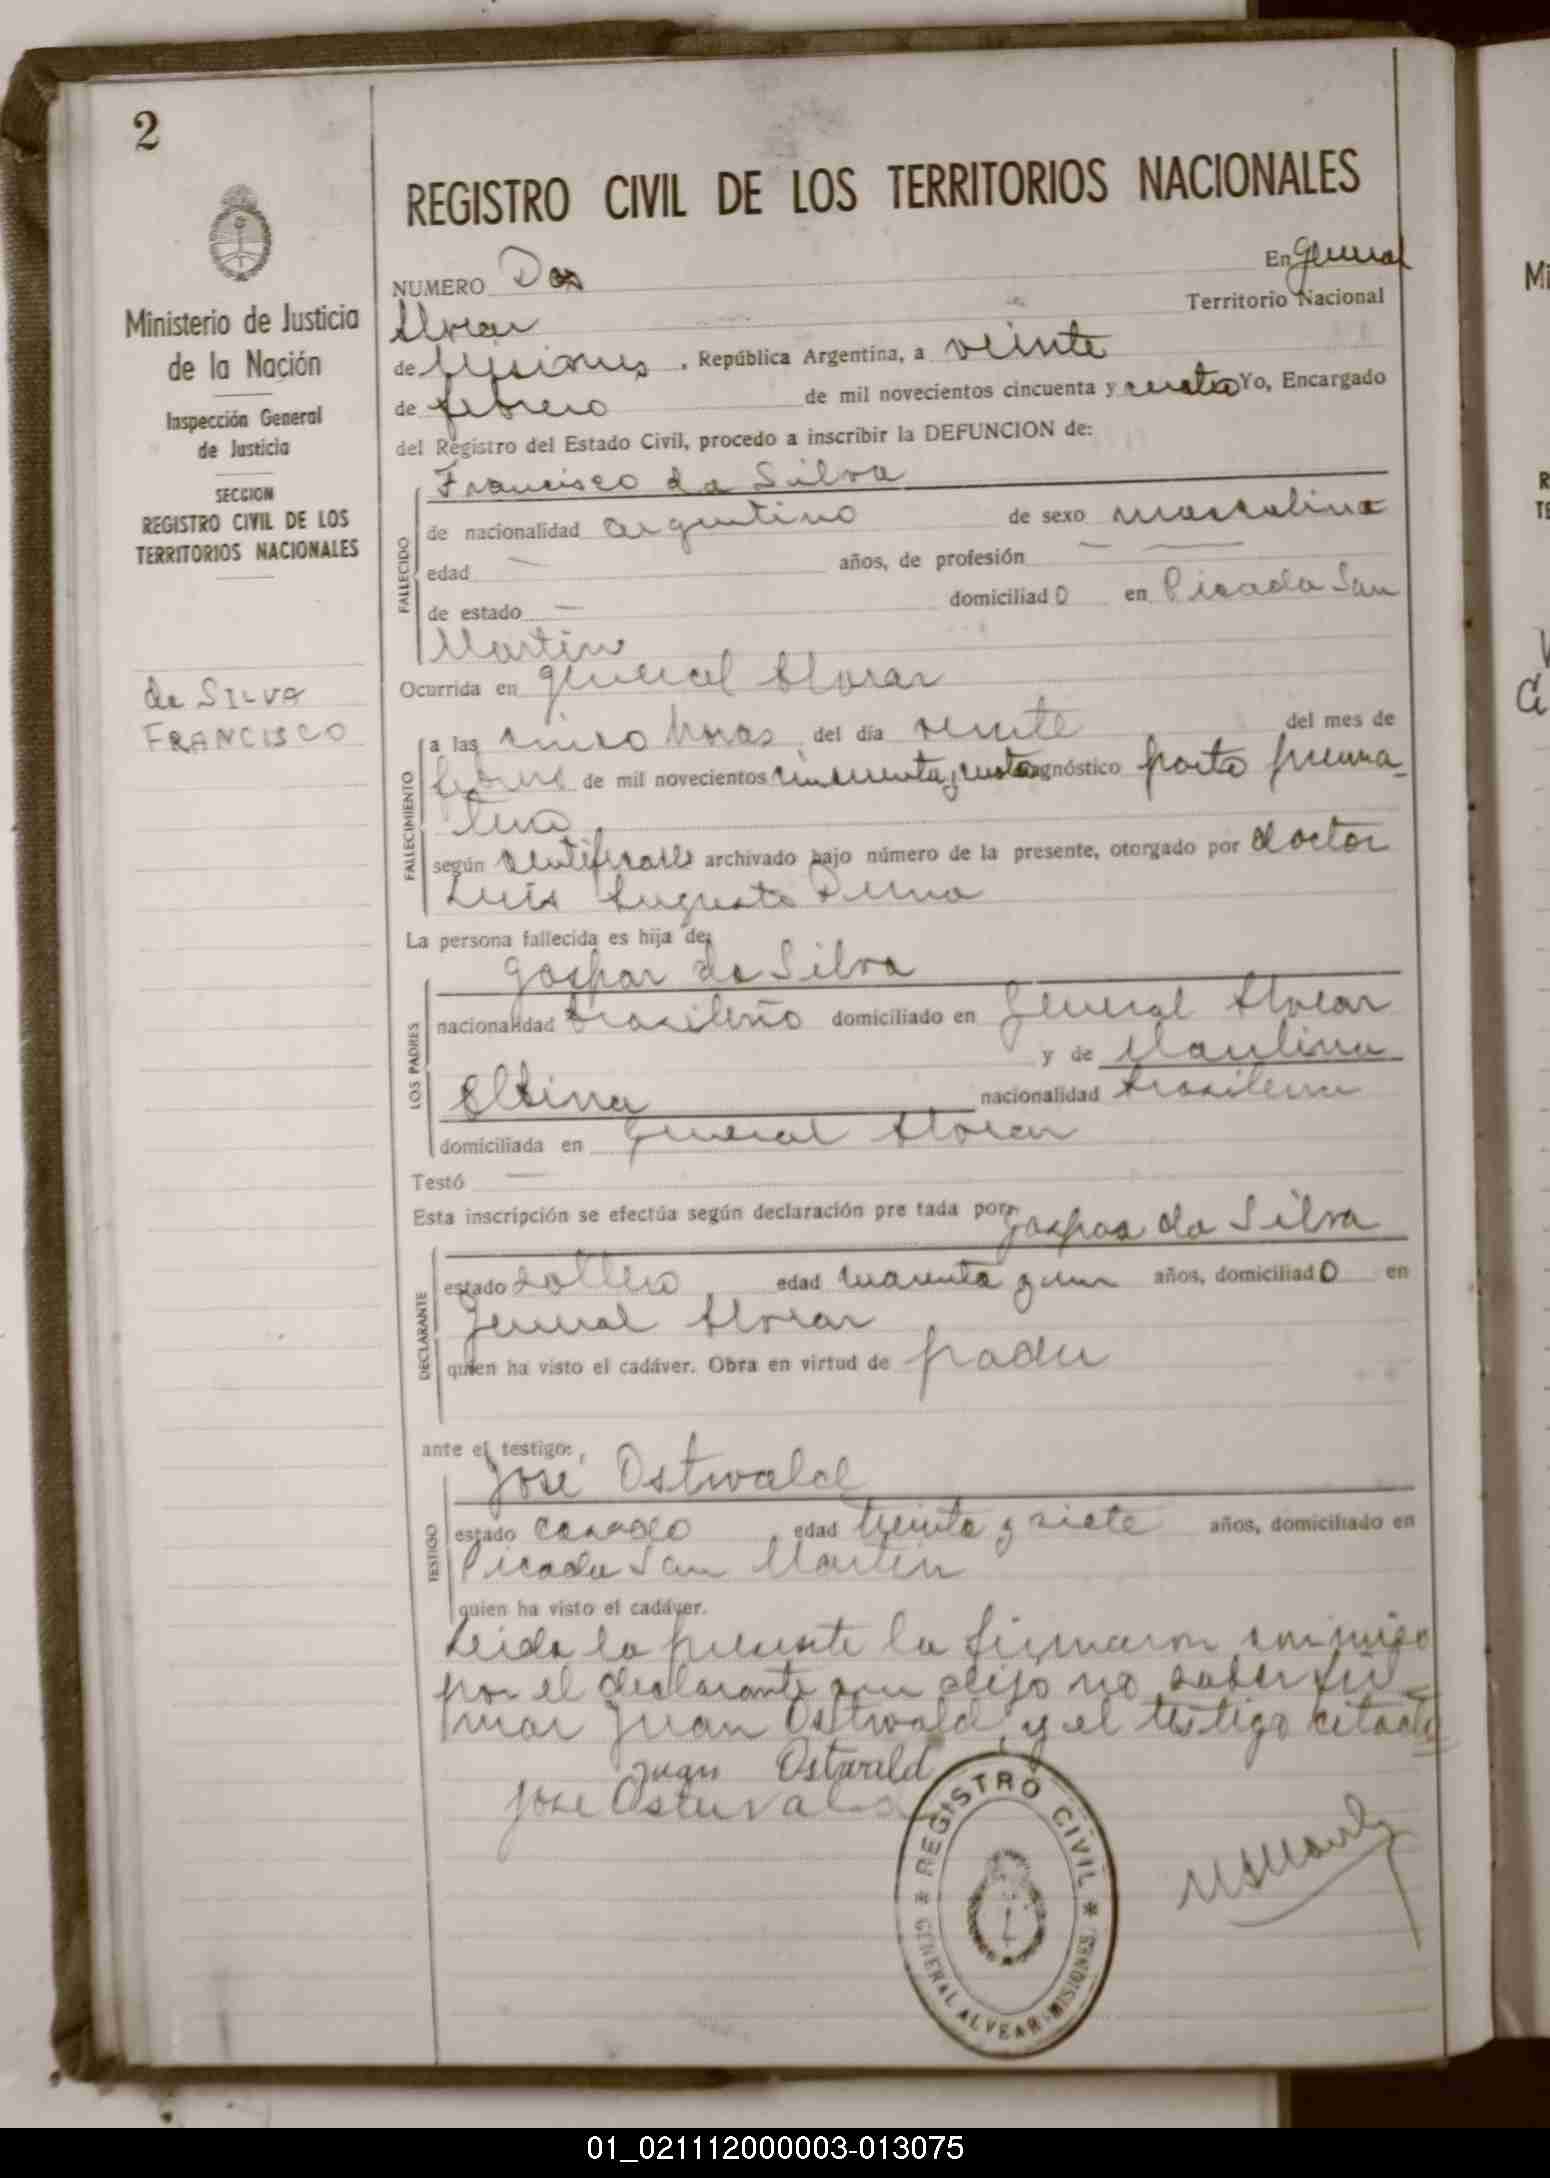 2
REGISTRO CIVIL DE LOS TERRITORIOS NACIONALES
Ministerio de Justicia
de la Nación
Inspección General
de Justicia
SECCION
REGISTRO CIVIL DE LOS
TERRITORIOS NACIONALES
de SILVA
FRANCISCO
NUMERO Dos En General
Alvear Territorio Nacional
de Misiones, República Argentina, a veinte
de febrero de mil novecientos cincuenta y cuatro Yo, Encargado
del Registro del Estado Civil, procedo a inscribir la DEFUNCION de:
FALLECIDO
Francisco da Silva
de nacionalidad argentino de sexo masculino
edad — años, de profesión — —
de estado — domiciliado en Picada San
Martin
Ocurrida en General Alvear
FALLECIMIENTO
a las cinco horas del día veinte del mes de
febrero de mil novecientos cincuenta y cuatro diagnóstico parto prema-
turo
según certificado archivado bajo número de la presente, otorgado por doctor
Luis Augusto
La persona fallecida es hija de:
LOS PADRES
Gaspar da Silva
nacionalidad brasileño domiciliado en General Alvear
y de Maulina
nacionalidad brasilera
domiciliada en General Alvear
Testó —
Esta inscripción se efectúa según declaración pre tada por: Gaspar da Silva
DECLARANTE
estado soltero edad cuarenta y un años, domiciliado en
General Alvear
quien ha visto el cadáver. Obra en virtud de padre
ante el testigo:
TESTIGO
José Ostwald
estado casado edad treinta y siete años, domiciliado en
Picada San Martin
quien ha visto el cadáver.
Leida la presente la firmaron conmigo
por el declarante que dijo no saber fir-
mar Juan Ostwald y el testigo citado
Juan Ostwald
Jose Ostwald
REGISTRO CIVIL
GENERAL ALVEAR-MISIONES
01_021112000003-013075